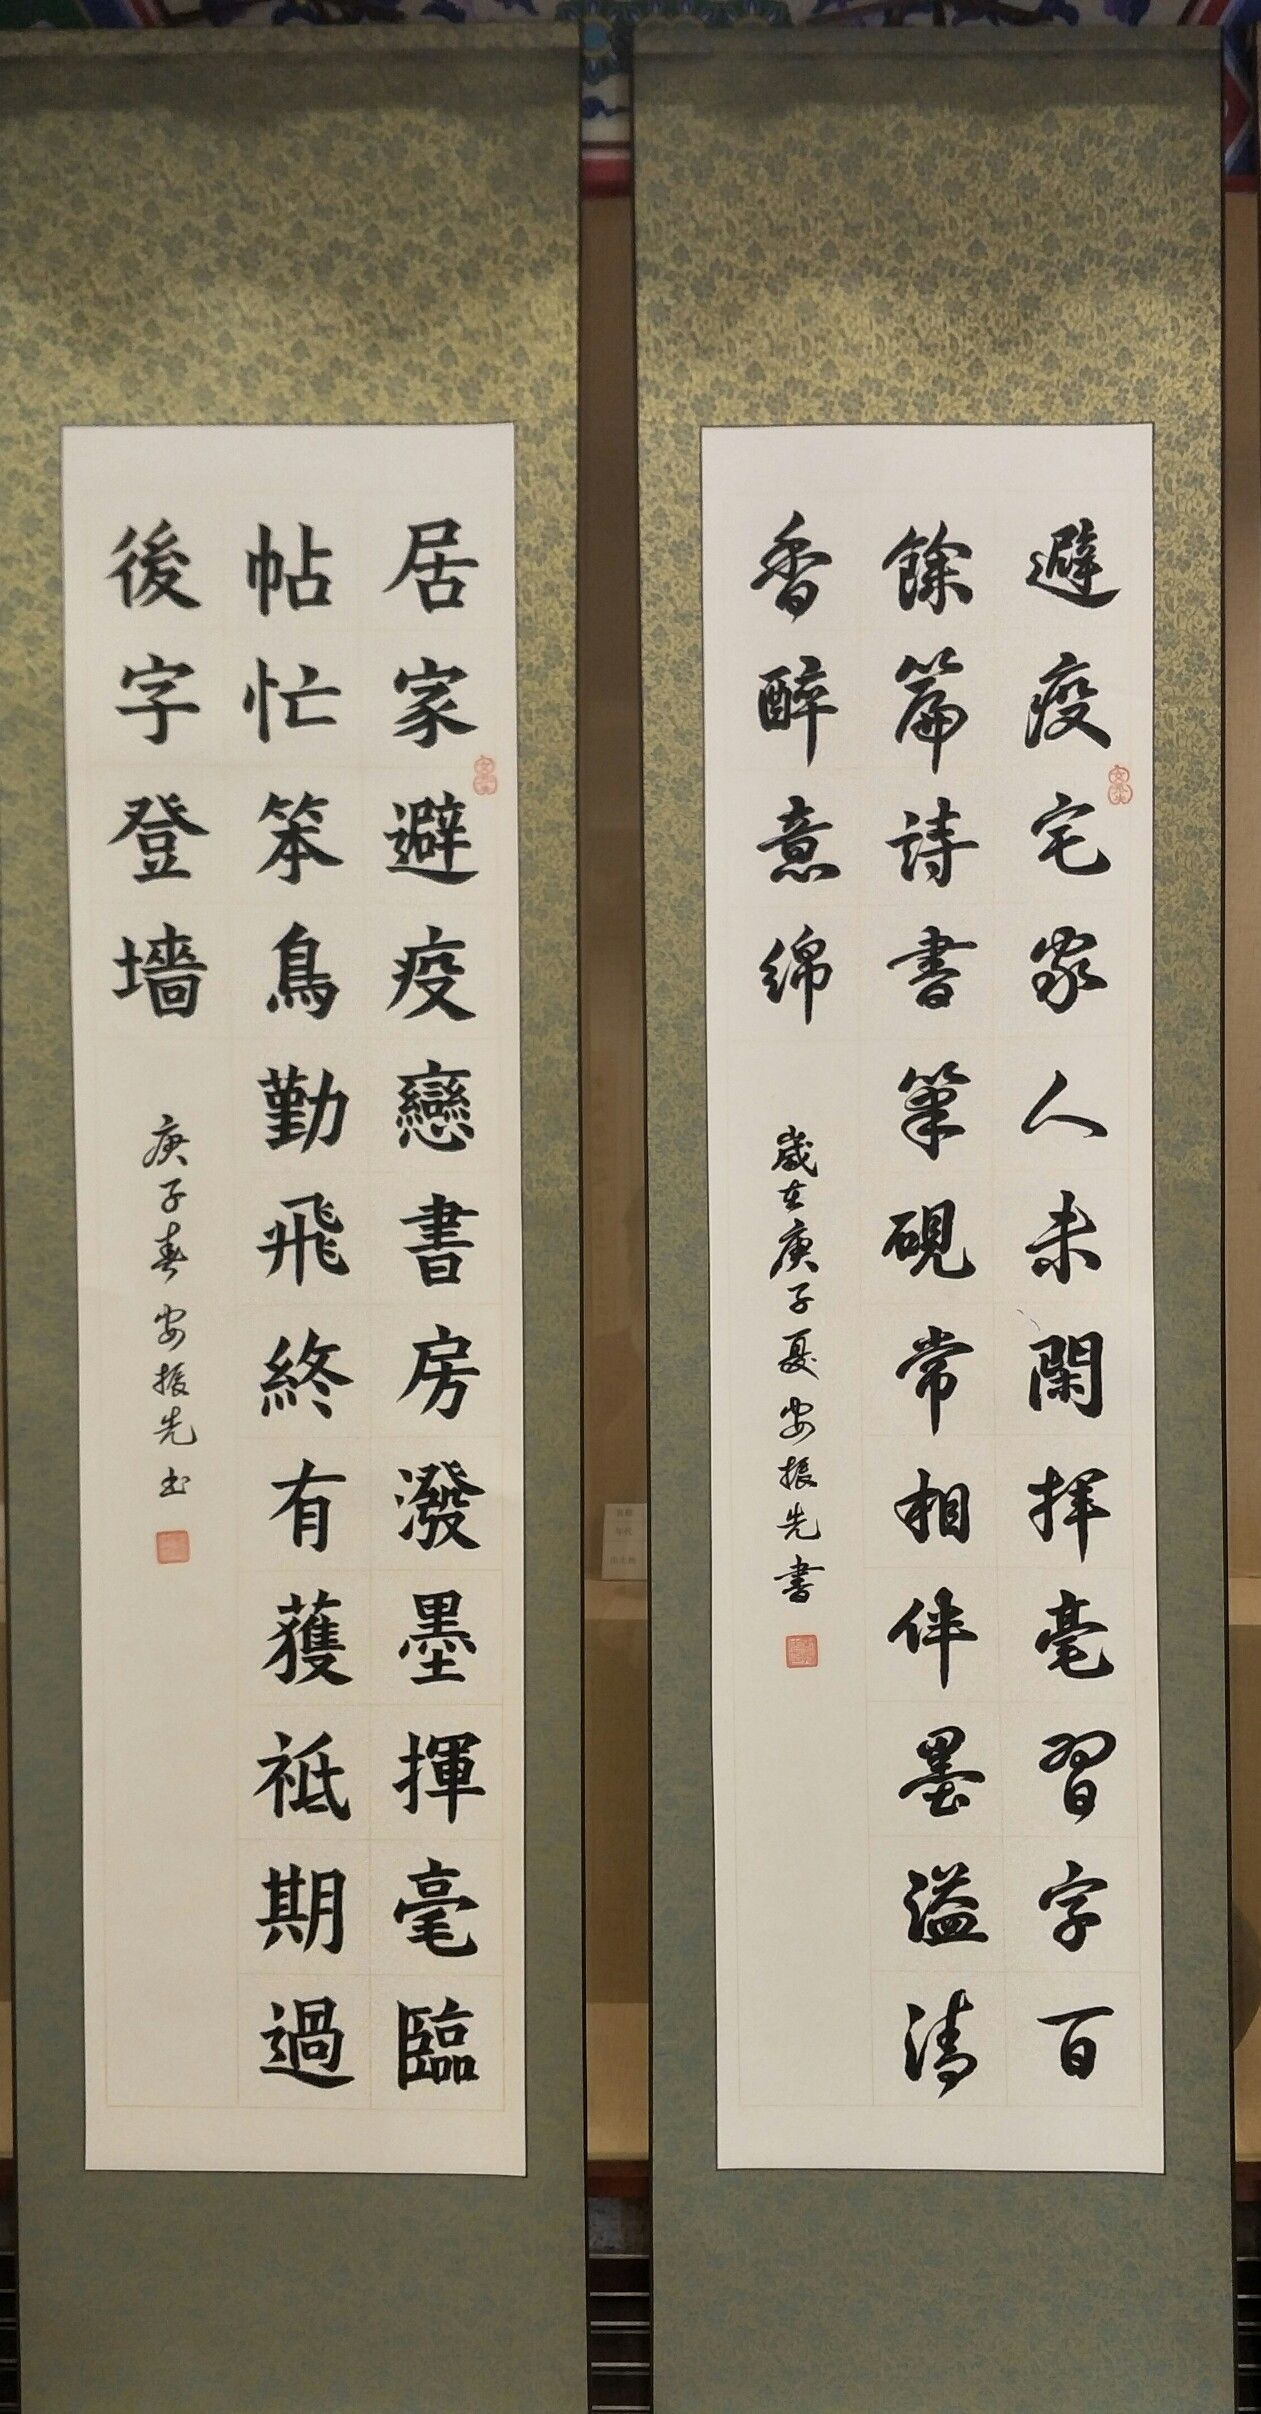 避疫宅家人未閑揮毫習字百
餘篇詩書筆硯常相伴墨溢清
香醉意綿
歲在庚子夏安振先書
居家避疫戀書房潑墨揮毫臨
帖忙笨鳥勤飛終有獲祗期過
後字登墻
庚子春安振先书